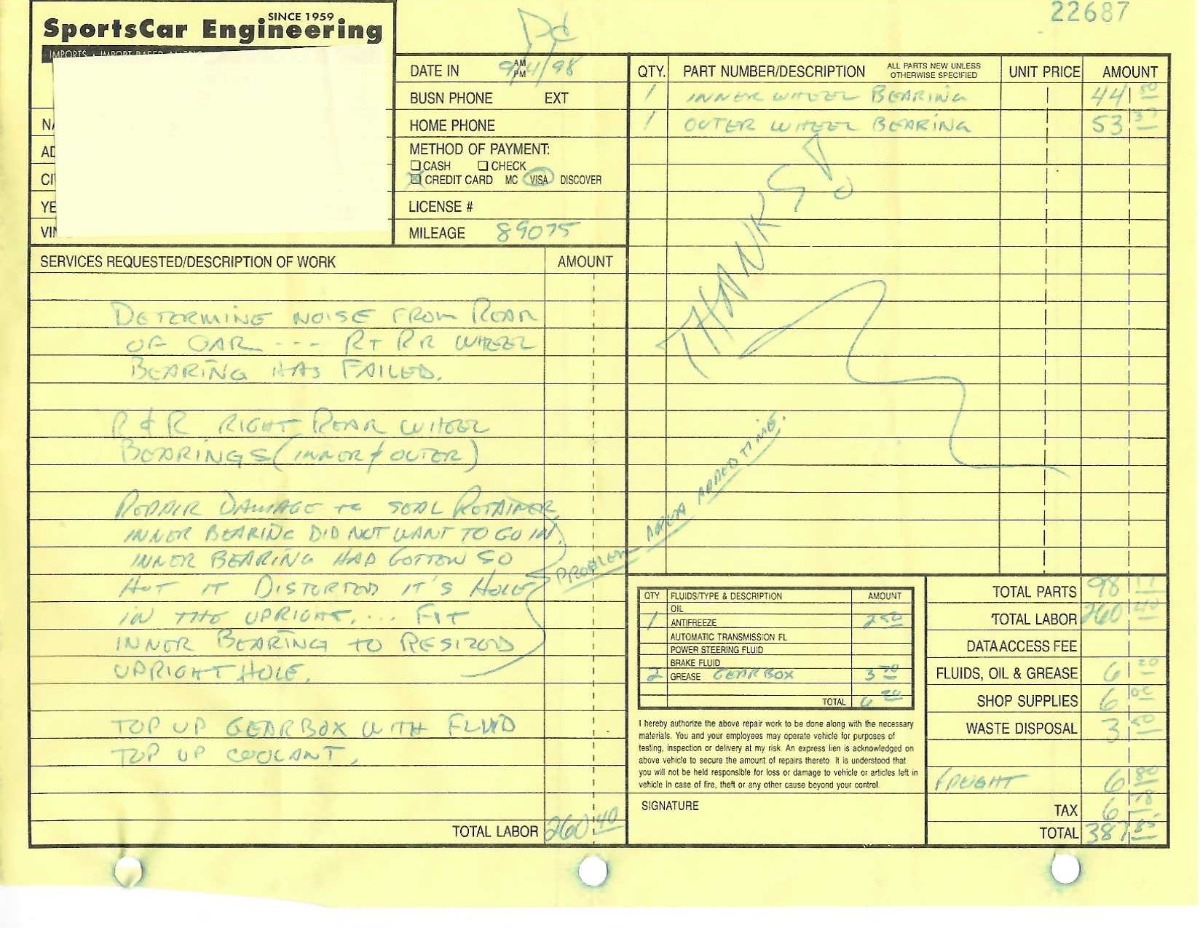 22687
SINCE 1959
SportsCar Engineering
Pd
DATE IN 98
AM
PM
BUSN PHONE EXT
HOME PHONE
METHOD OF PAYMENT:
☐ CASH ☐ CHECK
☒ CREDIT CARD MC VISA DISCOVER
LICENSE #
MILEAGE 89075
SERVICES REQUESTED/DESCRIPTION OF WORK AMOUNT
DETERMINE NOISE FROM REAR
OF CAR --- RT RR WHEEL
BEARING HAS FAILED.
R & R RIGHT REAR WHEEL
BEARINGS (INNER & OUTER)
REPAIR DAMAGE TO SEAL RETAINER
INNER BEARING DID NOT WANT TO GO IN.
INNER BEARING HAD GOTTON SO
HOT IT DISTORTED IT'S HOLE
IN THE UPRIGHT.... FIT
INNER BEARING TO RESIZED
UPRIGHT HOLE.
PROBLEM AREA ADDED TIME.
TOP UP GEARBOX WITH FLUID
TOP UP COOLANT.
TOTAL LABOR 260 40
QTY. PART NUMBER/DESCRIPTION ALL PARTS NEW UNLESS OTHERWISE SPECIFIED UNIT PRICE AMOUNT
1 INNER WHEEL BEARING 44 80
1 OUTER WHEEL BEARING 53 37
THANKS!
QTY FLUIDS/TYPE & DESCRIPTION AMOUNT
OIL
1 ANTIFREEZE 2 50
AUTOMATIC TRANSMISSION FL
POWER STEERING FLUID
BRAKE FLUID
2 GREASE GEARBOX 3 70
TOTAL 6 20
I hereby authorize the above repair work to be done along with the necessary
materials. You and your employees may operate vehicle for purposes of
testing, inspection or delivery at my risk. An express lien is acknowledged on
above vehicle to secure the amount of repairs thereto. It is understood that
you will not be held responsible for loss or damage to vehicle or articles left in
vehicle in case of fire, theft or any other cause beyond your control.
SIGNATURE
TOTAL PARTS 98 17
TOTAL LABOR 260 40
DATA ACCESS FEE
FLUIDS, OIL & GREASE 6 20
SHOP SUPPLIES 6 00
WASTE DISPOSAL 3 50
FREIGHT 6 80
TAX 6 78
TOTAL 387 85